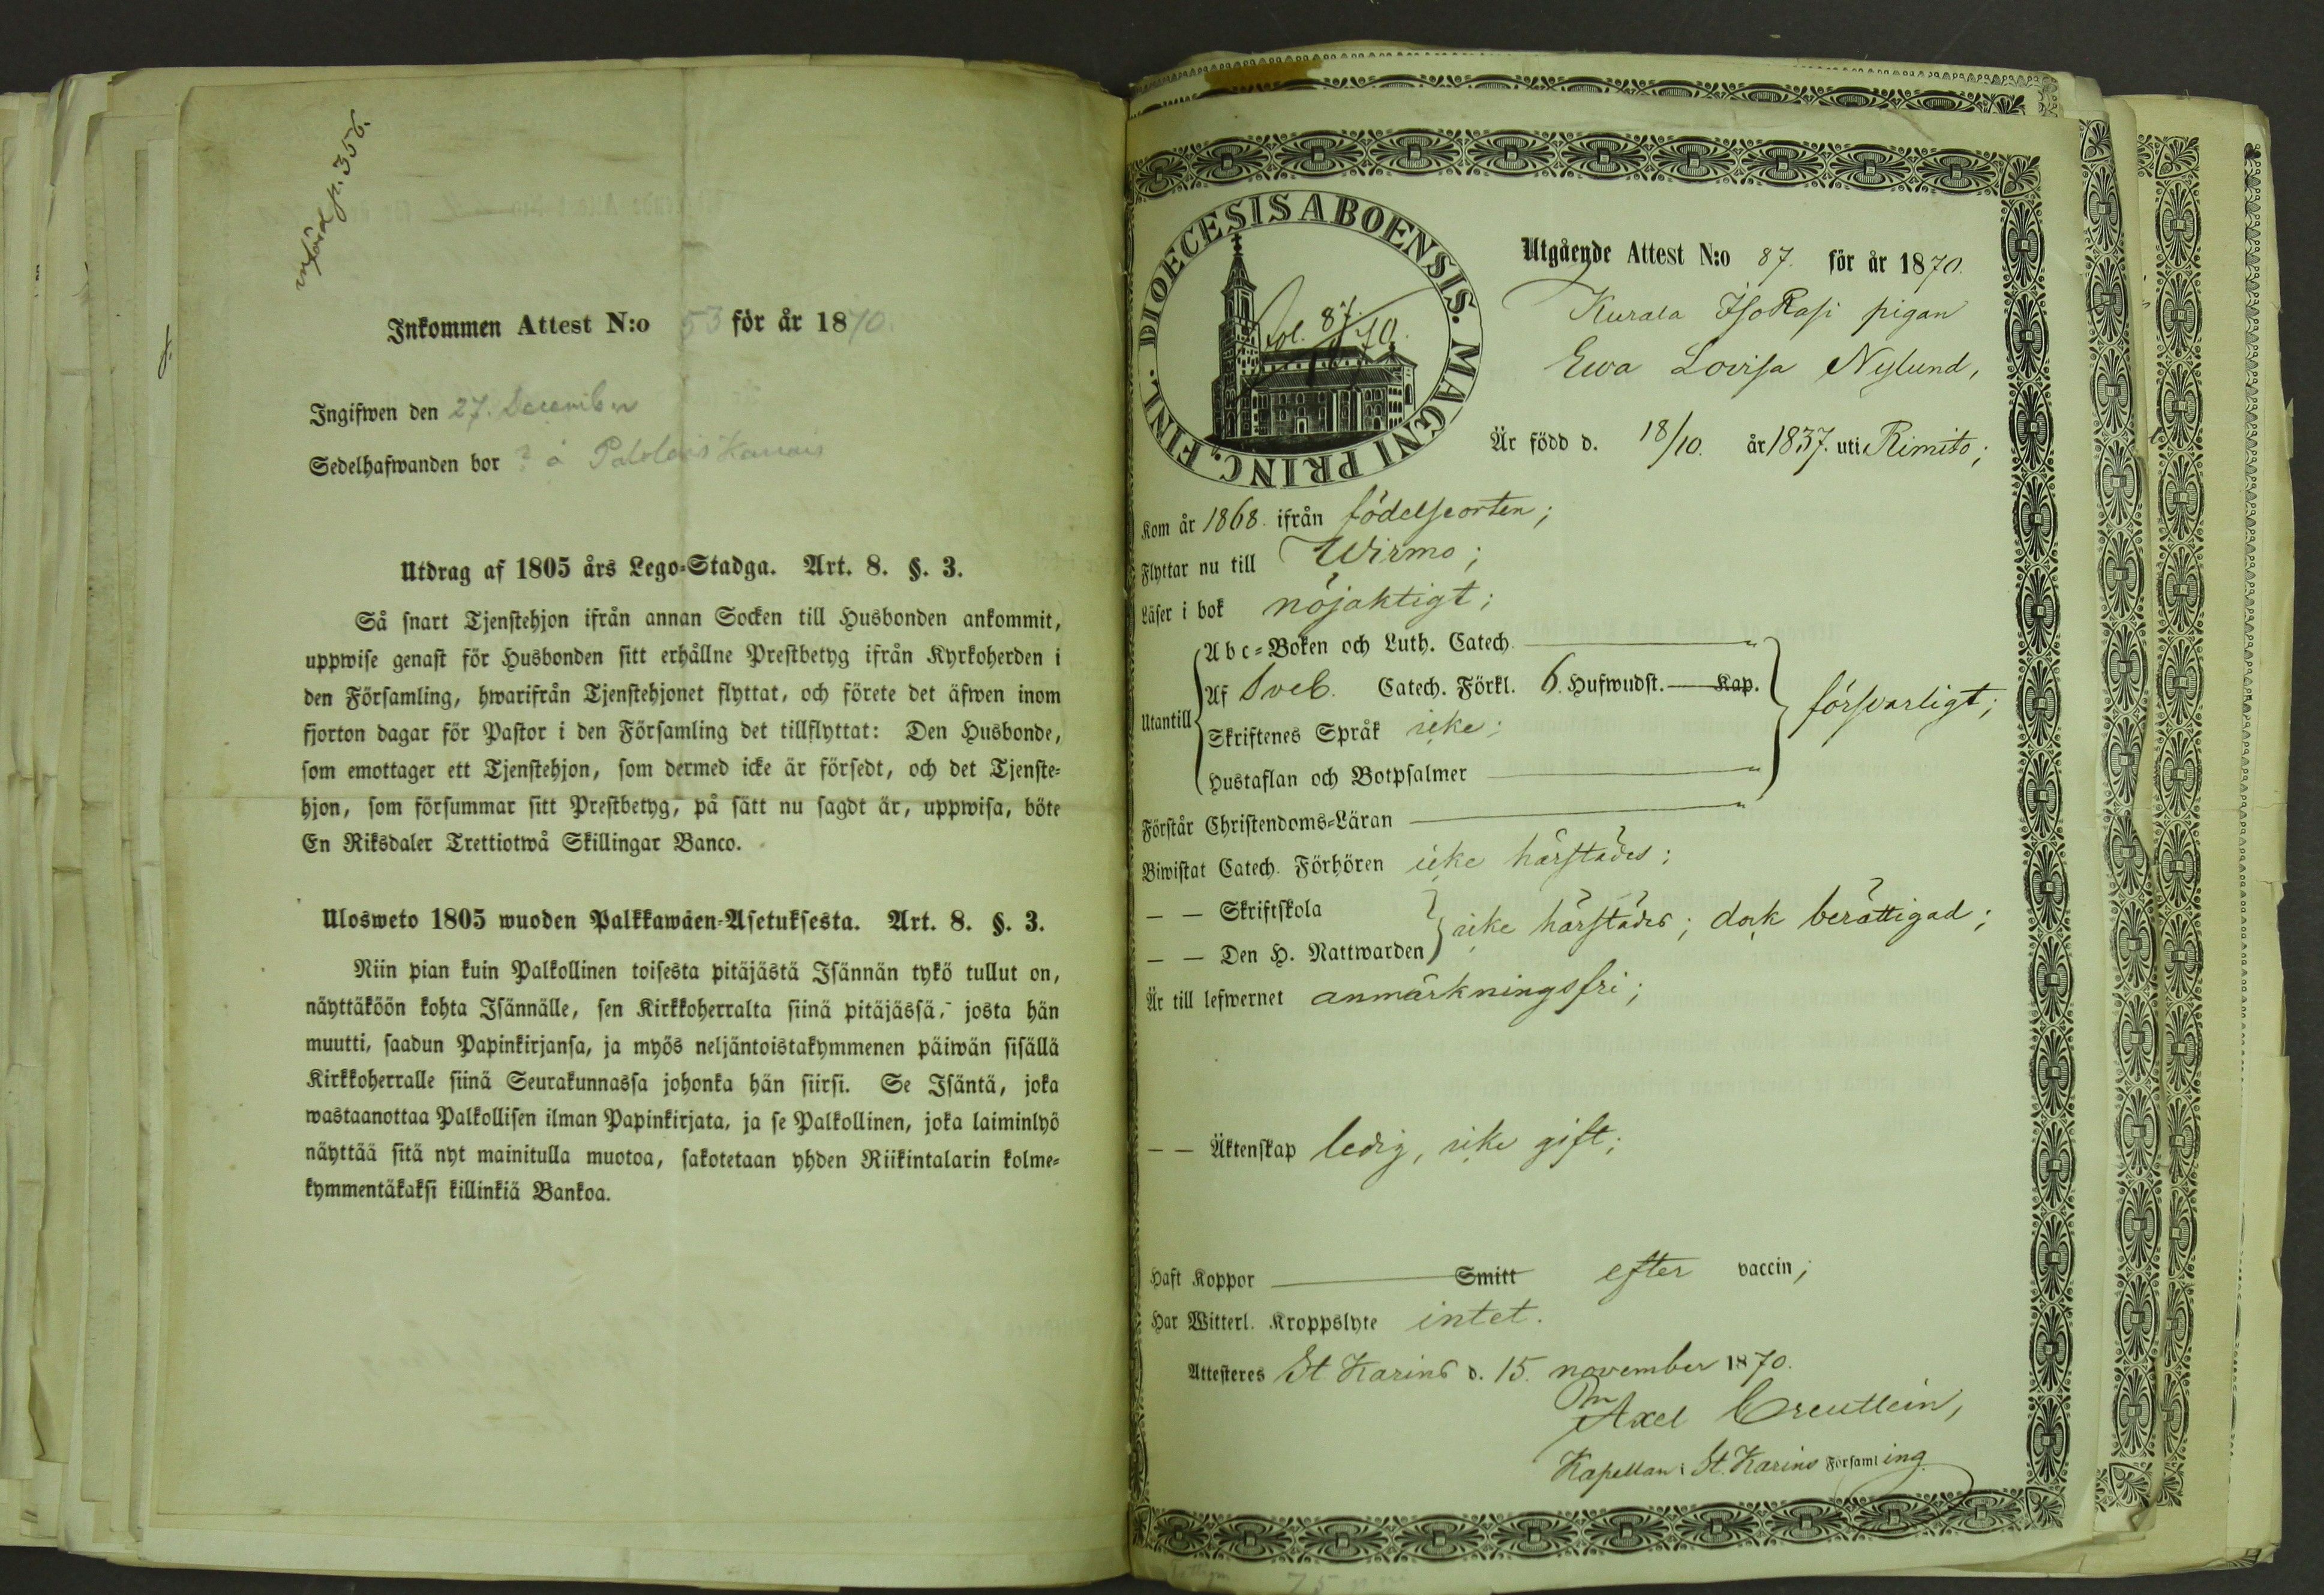 införd p. 356.
Inkommen Attest N:o 53 för år 1870.
Ingifwen den 27. December
Sedelhafwanden bor å
Utdrag af 1805 års Lego-Stadga. Art. 8. §. 3.
Så snart Tjenstehjon ifrån annan Socken till Husbonden ankommit,
uppwise genast för Husbonden sitt erhållne Prestbetyg ifrån Kyrkoherden i
den Församling, hwarifrån Tjenstehjonet flyttat, och förete det äfwen inom
fjorton dagar för Pastor i den Församling det tillflyttat: Den Husbonde,
som emottager ett Tjenstehjon, som dermed icke är försedt, och det Tjenste-
hjon, som försummar sitt Prestbetyg, på sätt nu sagdt är, uppwisa, böte
En Riksdaler Trettiotwå Skillingar Banco.
Ulosweto 1805 wuoden Palkkawäen-Asetuksesta. Art. 8. §. 3.
Niin pian kuin Palkollinen toisesta pitäjästä Isännän tykö tullut on,
näyttäköön kohta Isännälle, sen Kirkkoherralta siinä pitäjässä, josta hän
muutti, saadun Papinkirjansa, ja myös neljäntoistakymmenen päiwän sisällä
Kirkkoherralle siinä Seurakunnassa johonka hän siirsi. Se Isäntä, joka
wastaanottaa Palkollisen ilman Papinkirjata, ja se Palkollinen, joka laiminlyö
näyttää sitä nyt mainitulla muotoa, sakotetaan yhden Riikintalarin kolme-
kymmentäkaksi killinkiä Bankoa.
DIOECESIS ABOENSIS. MAGNI PRINC. FINL.
fol. 87. 1870.
Utgående Attest N:o 87. för år 1870.
Kurala IsoRasi pigan
Ewa Lovisa Nylund,
Är född d. 18/10. år 1837. uti Rimito;
Kom år 1868. ifrån födelseorten;
Flyttar nu till Wirmo;
Läser i bok nöjaktigt;
Utantill
Abc-Boken och Luth. Catech. — "
Af Sveb. Catech. Förkl. 6. Hufwudst. — Kap.
försvarligt;
Skriftenes Språk icke;
Hustaflan och Botpsalmer — "
Förstår Christendoms-Läran — "
Biwistat Catech. Förhören icke härstädes;
— — Skriftskola
— — Den H. Nattwarden
icke härstädes; dock berättigad;
Är till lefwernet anmärkningsfri;
— — Äktenskap ledig, icke gift;
Haft Koppor — Smitt efter vaccin;
Har Witterl. Kroppslyte intet.
Attesteras St. Karins d. 15. november 1870.
Axel Creutlein,
Kapellan i St. Karins Församling.